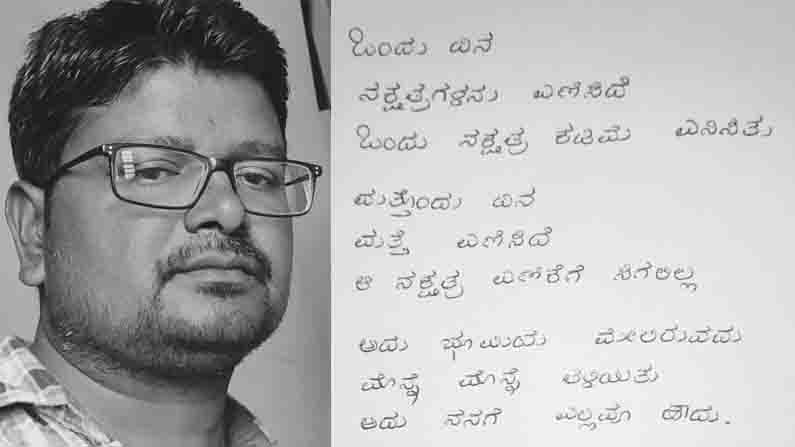 ಒಂದು ದಿನ
ನಕ್ಷತ್ರಗಳನು ಎಣಿಸಿದೆ
ಒಂದು ನಕ್ಷತ್ರ ಕಡಿಮೆ ಎನಿಸಿತು
ಮತ್ತೊಂದು ದಿನ
ಮತ್ತೆ ಎಣಿಸಿದೆ
ಆ ನಕ್ಷತ್ರ ಎಣಿಕೆಗೆ ಸಿಗಲಿಲ್ಲ
ಅದು ಭೂಮಿಯ ಮೇಲಿರುವುದು
ಮೊನ್ನೆ ಮೊನ್ನೆ ತಿಳಿಯಿತು
ಅದು ನನಗೆ ಎಲ್ಲವೂ ಹೌದು.